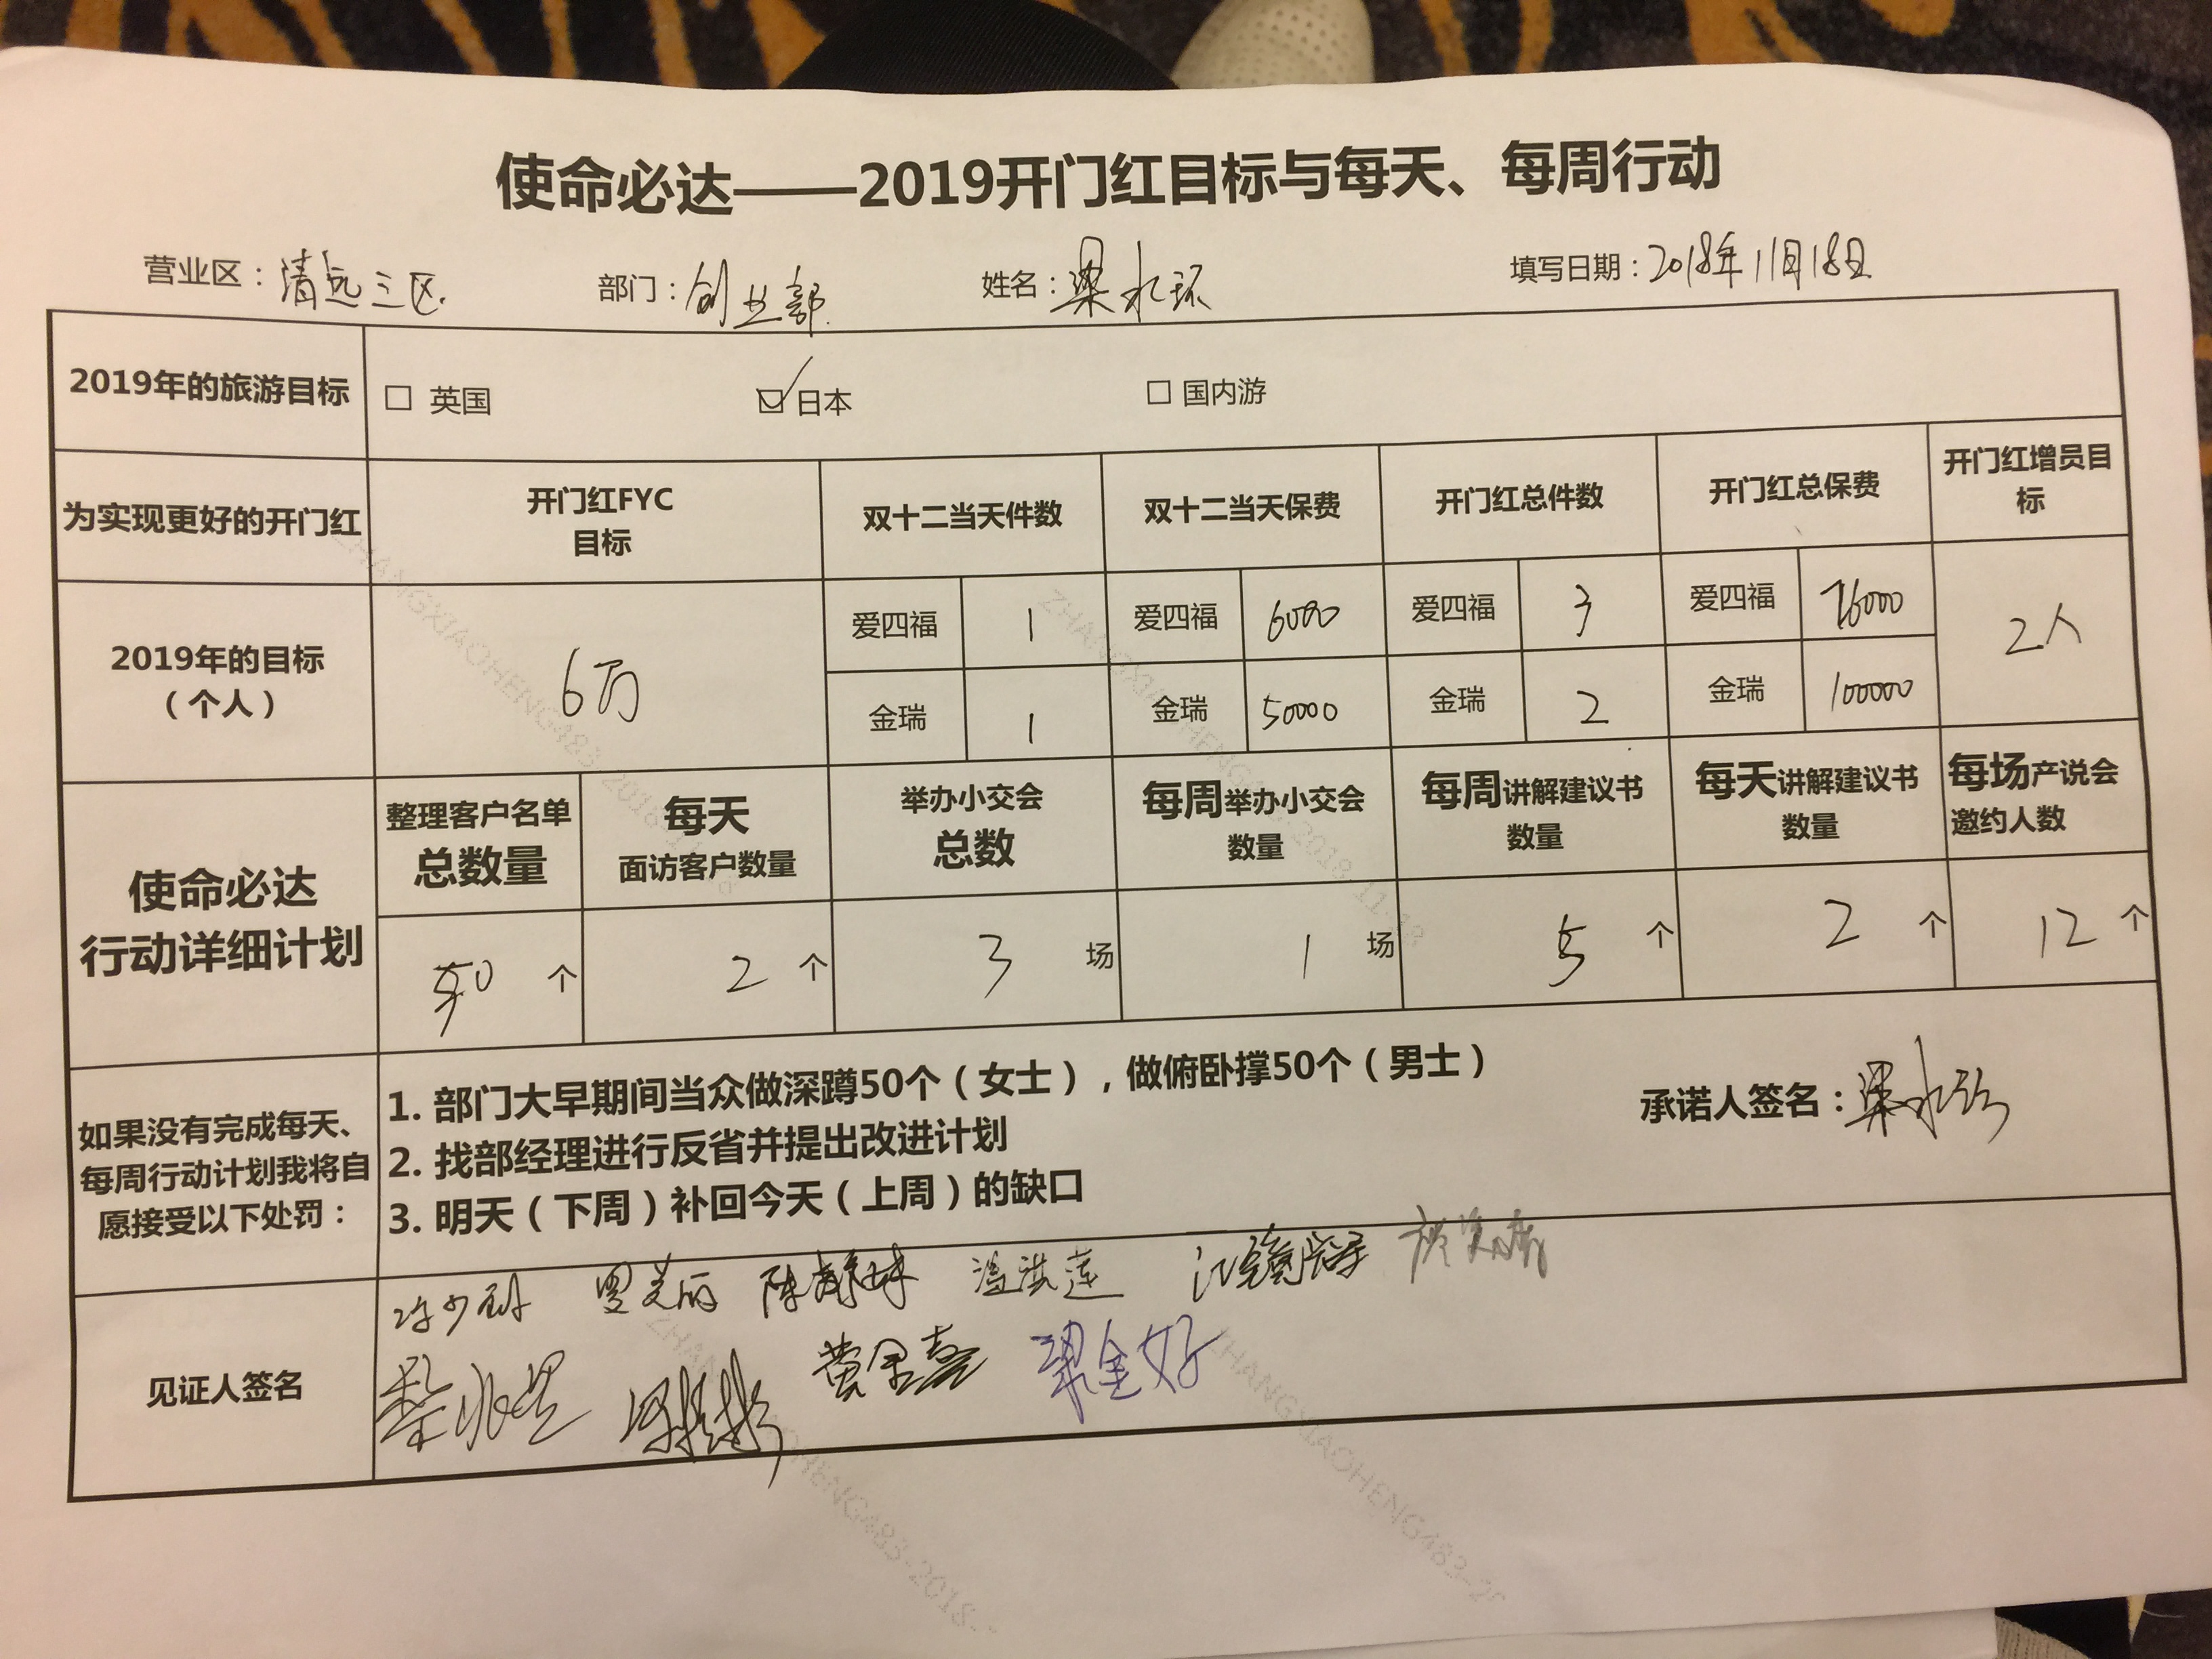 使命必达——2019开门红目标与每天、每周行动
营业区：清远三区 部门：创业部 姓名：梁水环 填写日期：2018年11月18日
2019年的旅游目标 □ 英国 ☑ 日本 □ 国内游
为实现更好的开门红 开门红FYC目标 双十二当天件数 双十二当天保费 开门红总件数 开门红总保费 开门红增员目标
2019年的目标（个人） 6万 2人
爱四福 1 爱四福 6000 爱四福 3 爱四福
金瑞 1 金瑞 50000 金瑞 2 金瑞 100000
使命必达
行动详细计划
整理客户名单总数量 每天面访客户数量 举办小交会总数 每周举办小交会数量 每周讲解建议书数量 每天讲解建议书数量 每场产说会邀约人数
50个 2个 3场 1场 5个 2个 12个
如果没有完成每天、
每周行动计划我将自
愿接受以下处罚：
1. 部门大早期间当众做深蹲50个（女士），做俯卧撑50个（男士）
2. 找部经理进行反省并提出改进计划
3. 明天（下周）补回今天（上周）的缺口
承诺人签名：梁水环
见证人签名
罗美丽 冯洪莲
梁金好
ZHANGXIAOHENG483-2018-11-18
ZHANGXIAOHENG483-2018-11-18
ZHANGXIAOHENG483-2018-
ZHANGXIAOHENG483-20